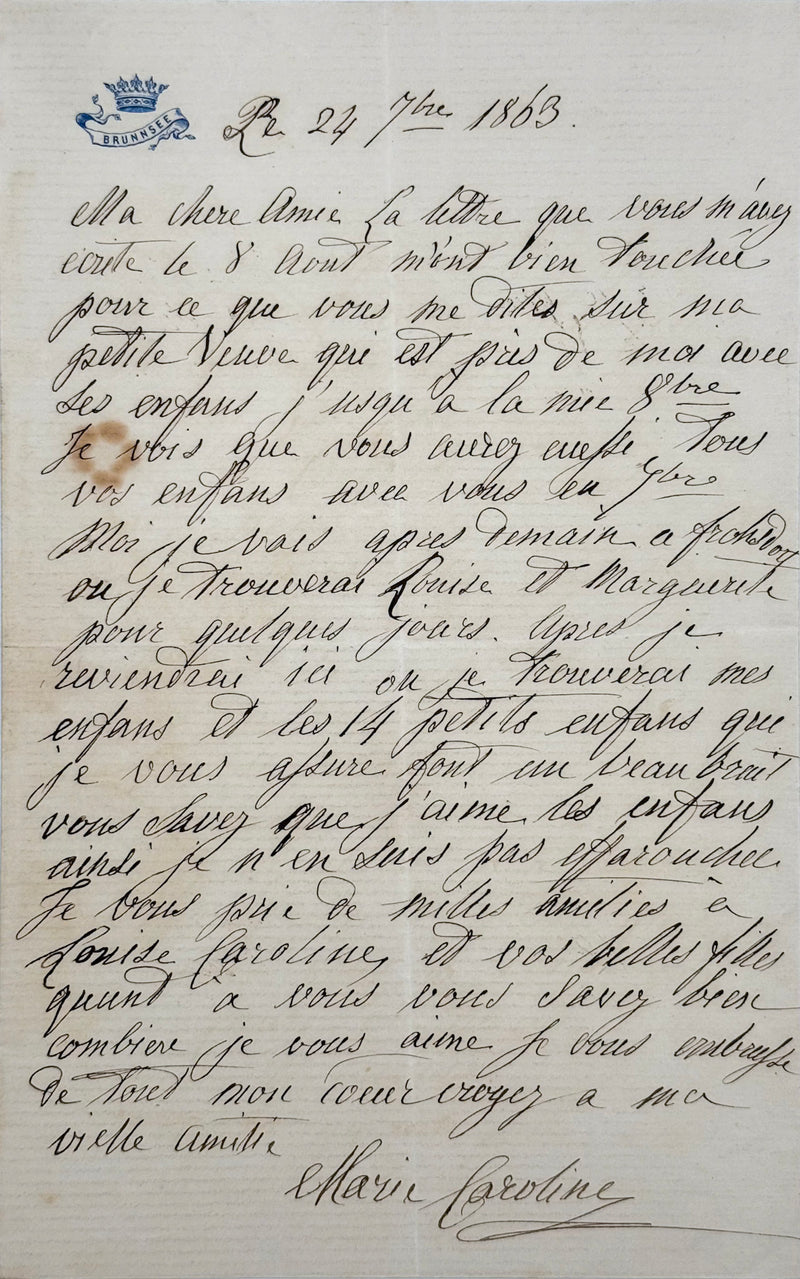 BRUNNSEE
Le 24 7bre 1863.
Ma chere Amie La lettre que vous m'avez
ecrite le 8 Aout m'ont bien touchée
pour ce que vous me dites sur ma
petite Veuve qui est près de moi avec
ses enfans j'usqu'à la mie 8bre
Je vois que vous aurez aussi tous
vos enfans avec vous en 7bre
Moi je vais apres demain a frohsdorf
ou je trouverai Louise et Marguerite
pour quelques jours. Apres je
reviendrai ici ou je trouverai mes
enfans et les 14 petits enfans qui
je vous assure font un beau bruit
vous savez que j'aime les enfans
ainsi je n'en suis pas effarouchee
Je vous prie de milles amities à
Louise Caroline et vos belles filles
quant à vous vous savez bien
combien je vous aime Je vous embrasse
de tout mon coeur croyez a ma
vielle amitie
Marie Caroline